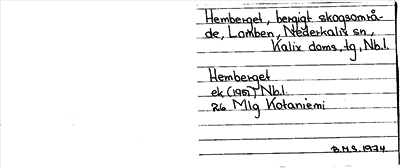 Hemberget, bergigt skogsområ-
de, Lomben, Nederkalix sn,
Kalix doms.tg, Nb.l.
Hemberget
ek (1951) Nb.l.
26 Mlg Kotaniemi
B.M.S. 1974